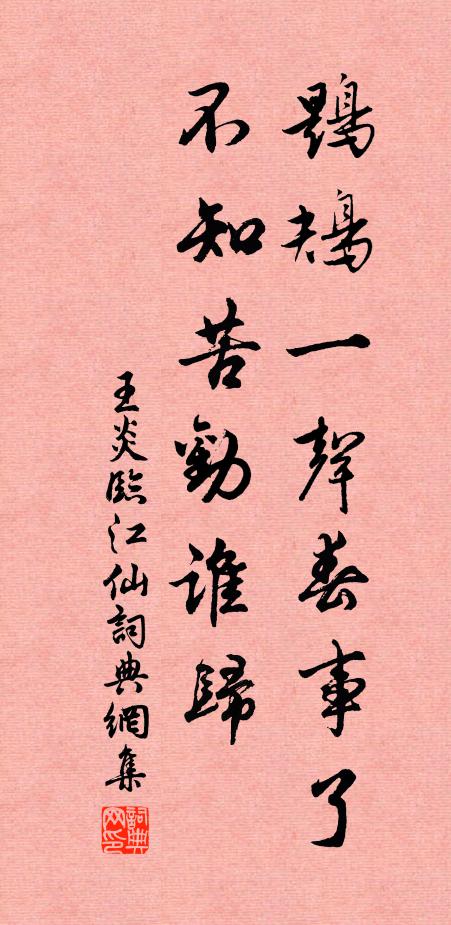 鶗鴂一聲春事了
不知苦勸誰歸
王炎臨江仙詞典網集
詞典
网印